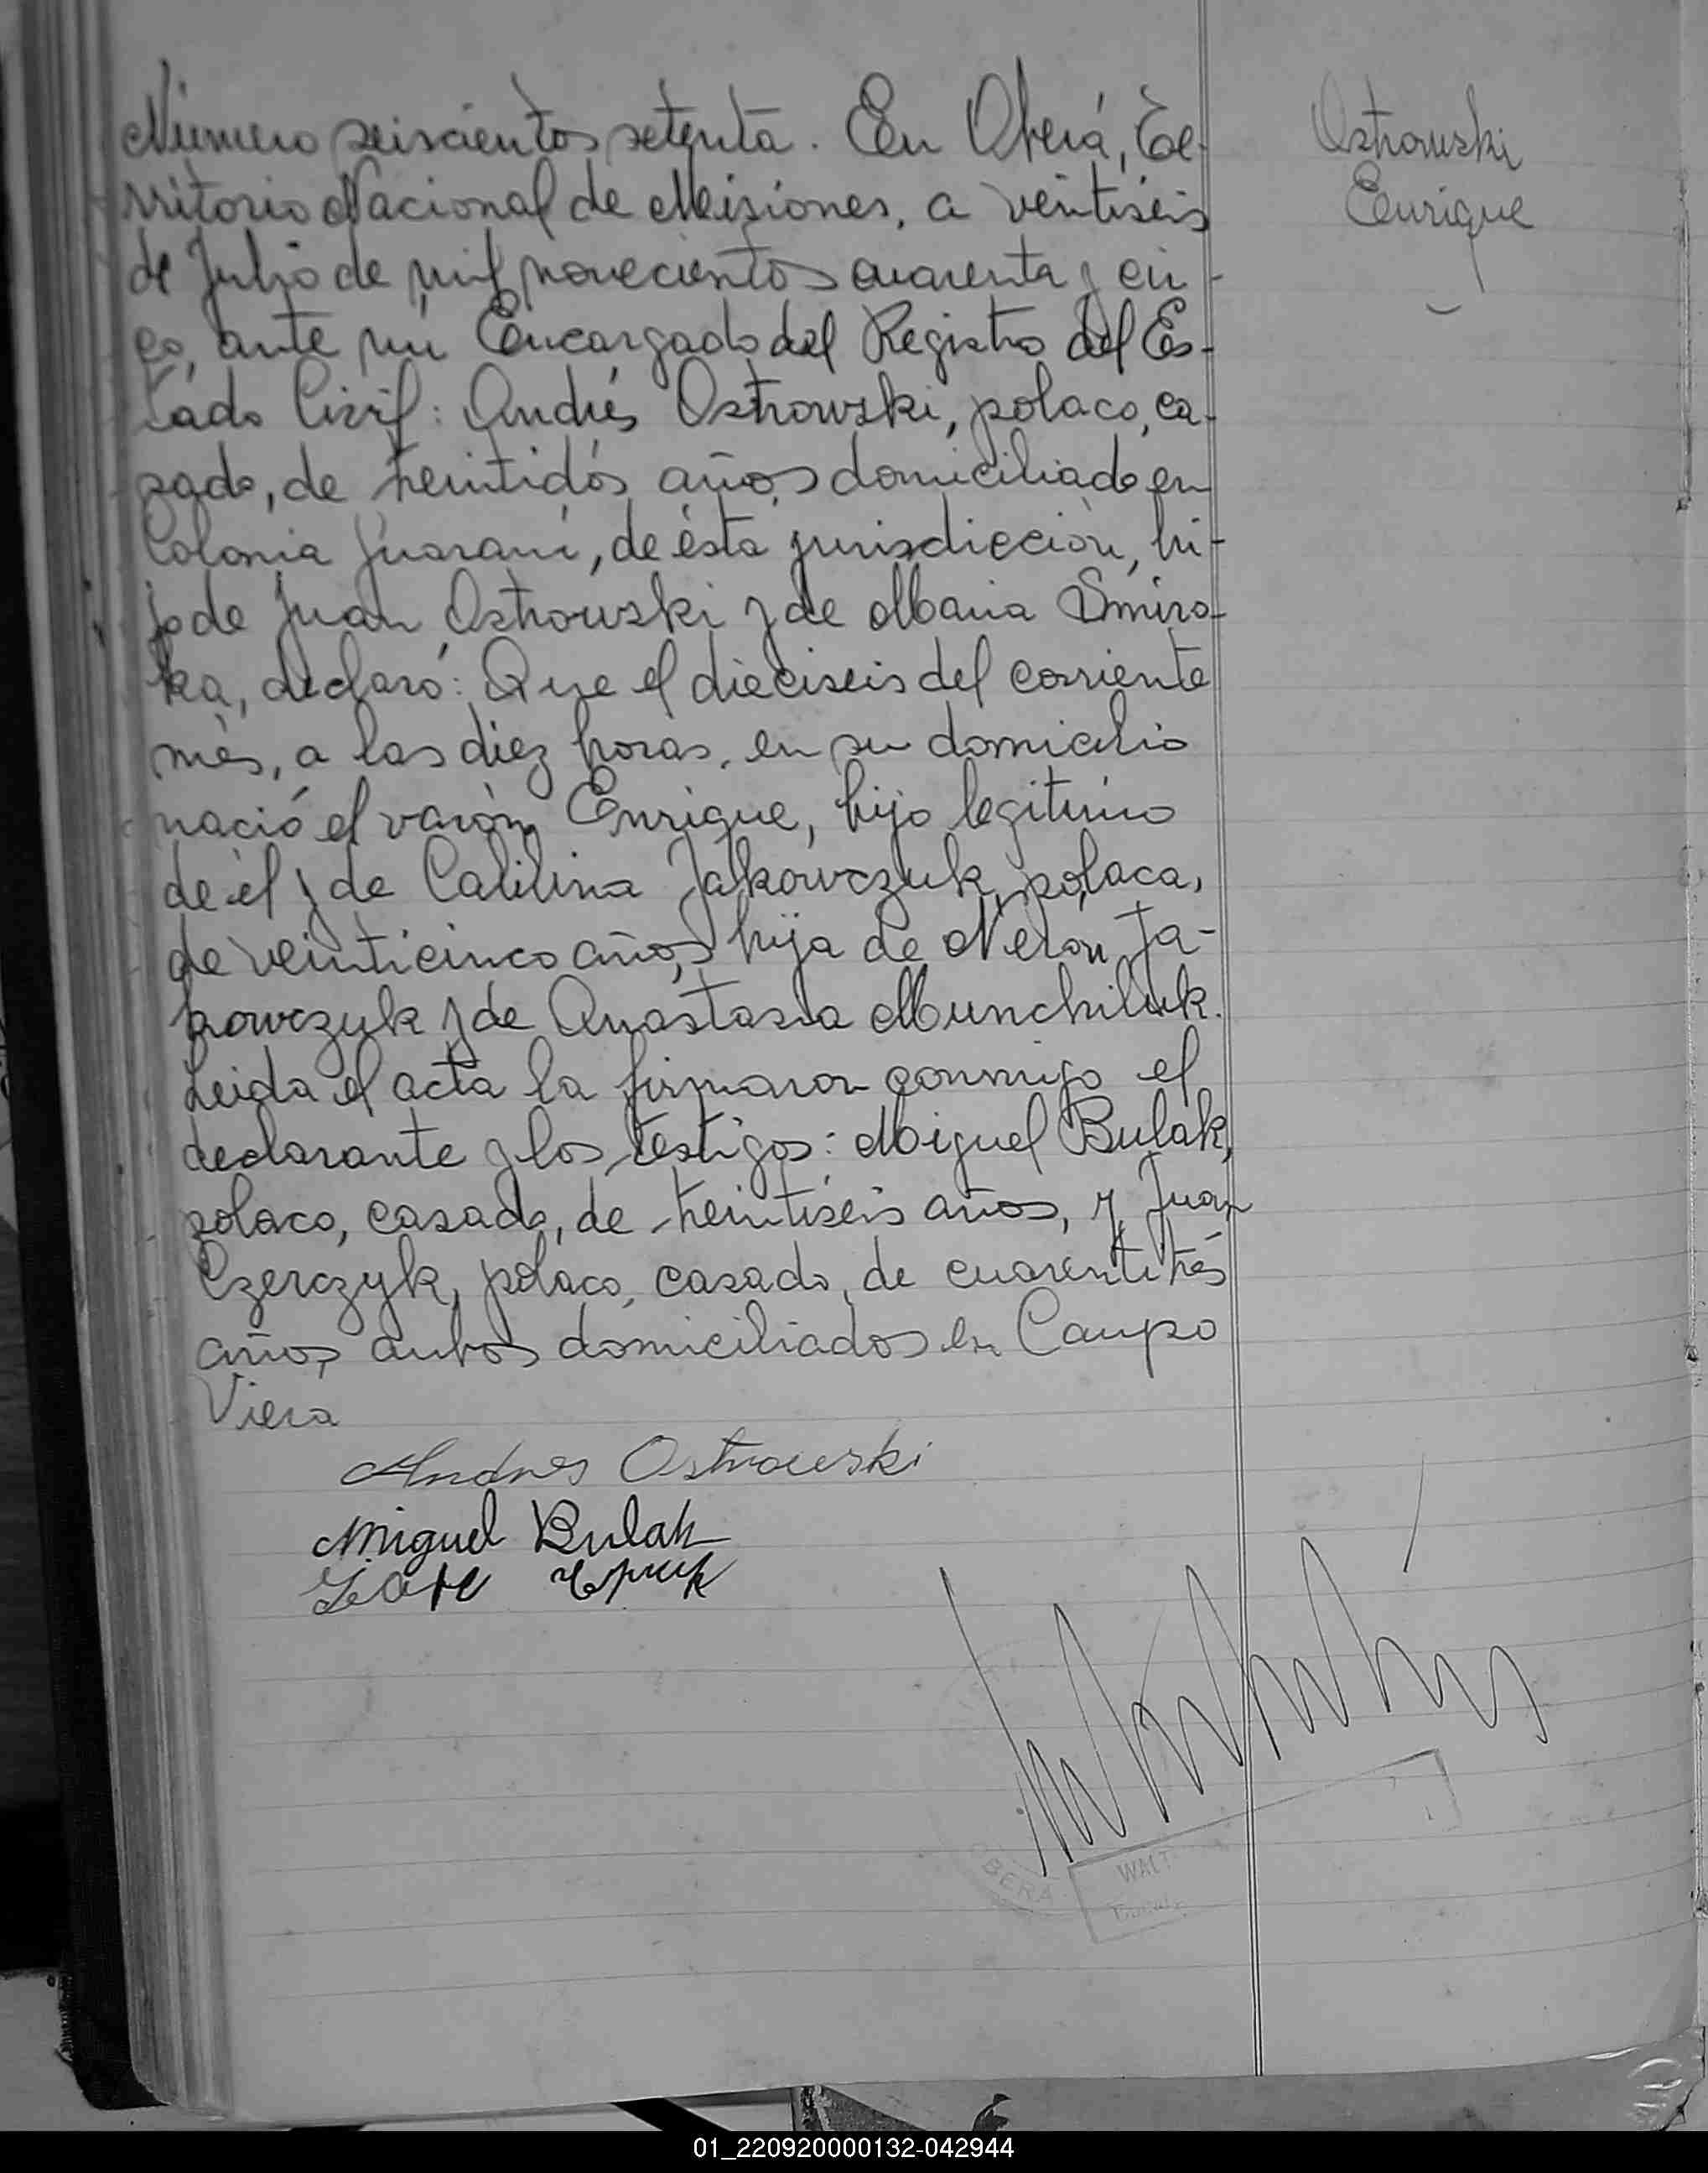 Número seiscientos setenta. En Oberá, Te-
rritorio Nacional de Misiones, a veintiséis
de Julio de mil novecientos cuarenta y cin-
co, ante mi Encargado del Registro del Es-
tado Civil: Andrés Ostrowski, polaco, ca-
sado, de treintidós años, domiciliado en
Colonia Guaraní, de ésta jurisdicción, hi-
jo de Juan Ostrowski y de Maria Smiro-
ka, declaró: Que el dieciseis del corriente
més, a las diez horas, en su domicilio
nació el varón Enrique, hijo legitimo
de él y de Calilina Jakowczuk, polaca,
de veinticinco años, hija de Nerón Ja-
kowczuk y de Anastasia Munchiluk.
Leida el acta la firmaron conmigo el
declarante y los testigos: Miguel Bulak,
polaco, casado, de treintiseis años, y Juan
Czerczyk, polaco, casado, de cuarentitrés
años, ambos domiciliados en Campo
Viera
Ostrowski
Enrique
Andres Ostrowski
Miguel Bulak
OBERA
WALT
01_220920000132-042944